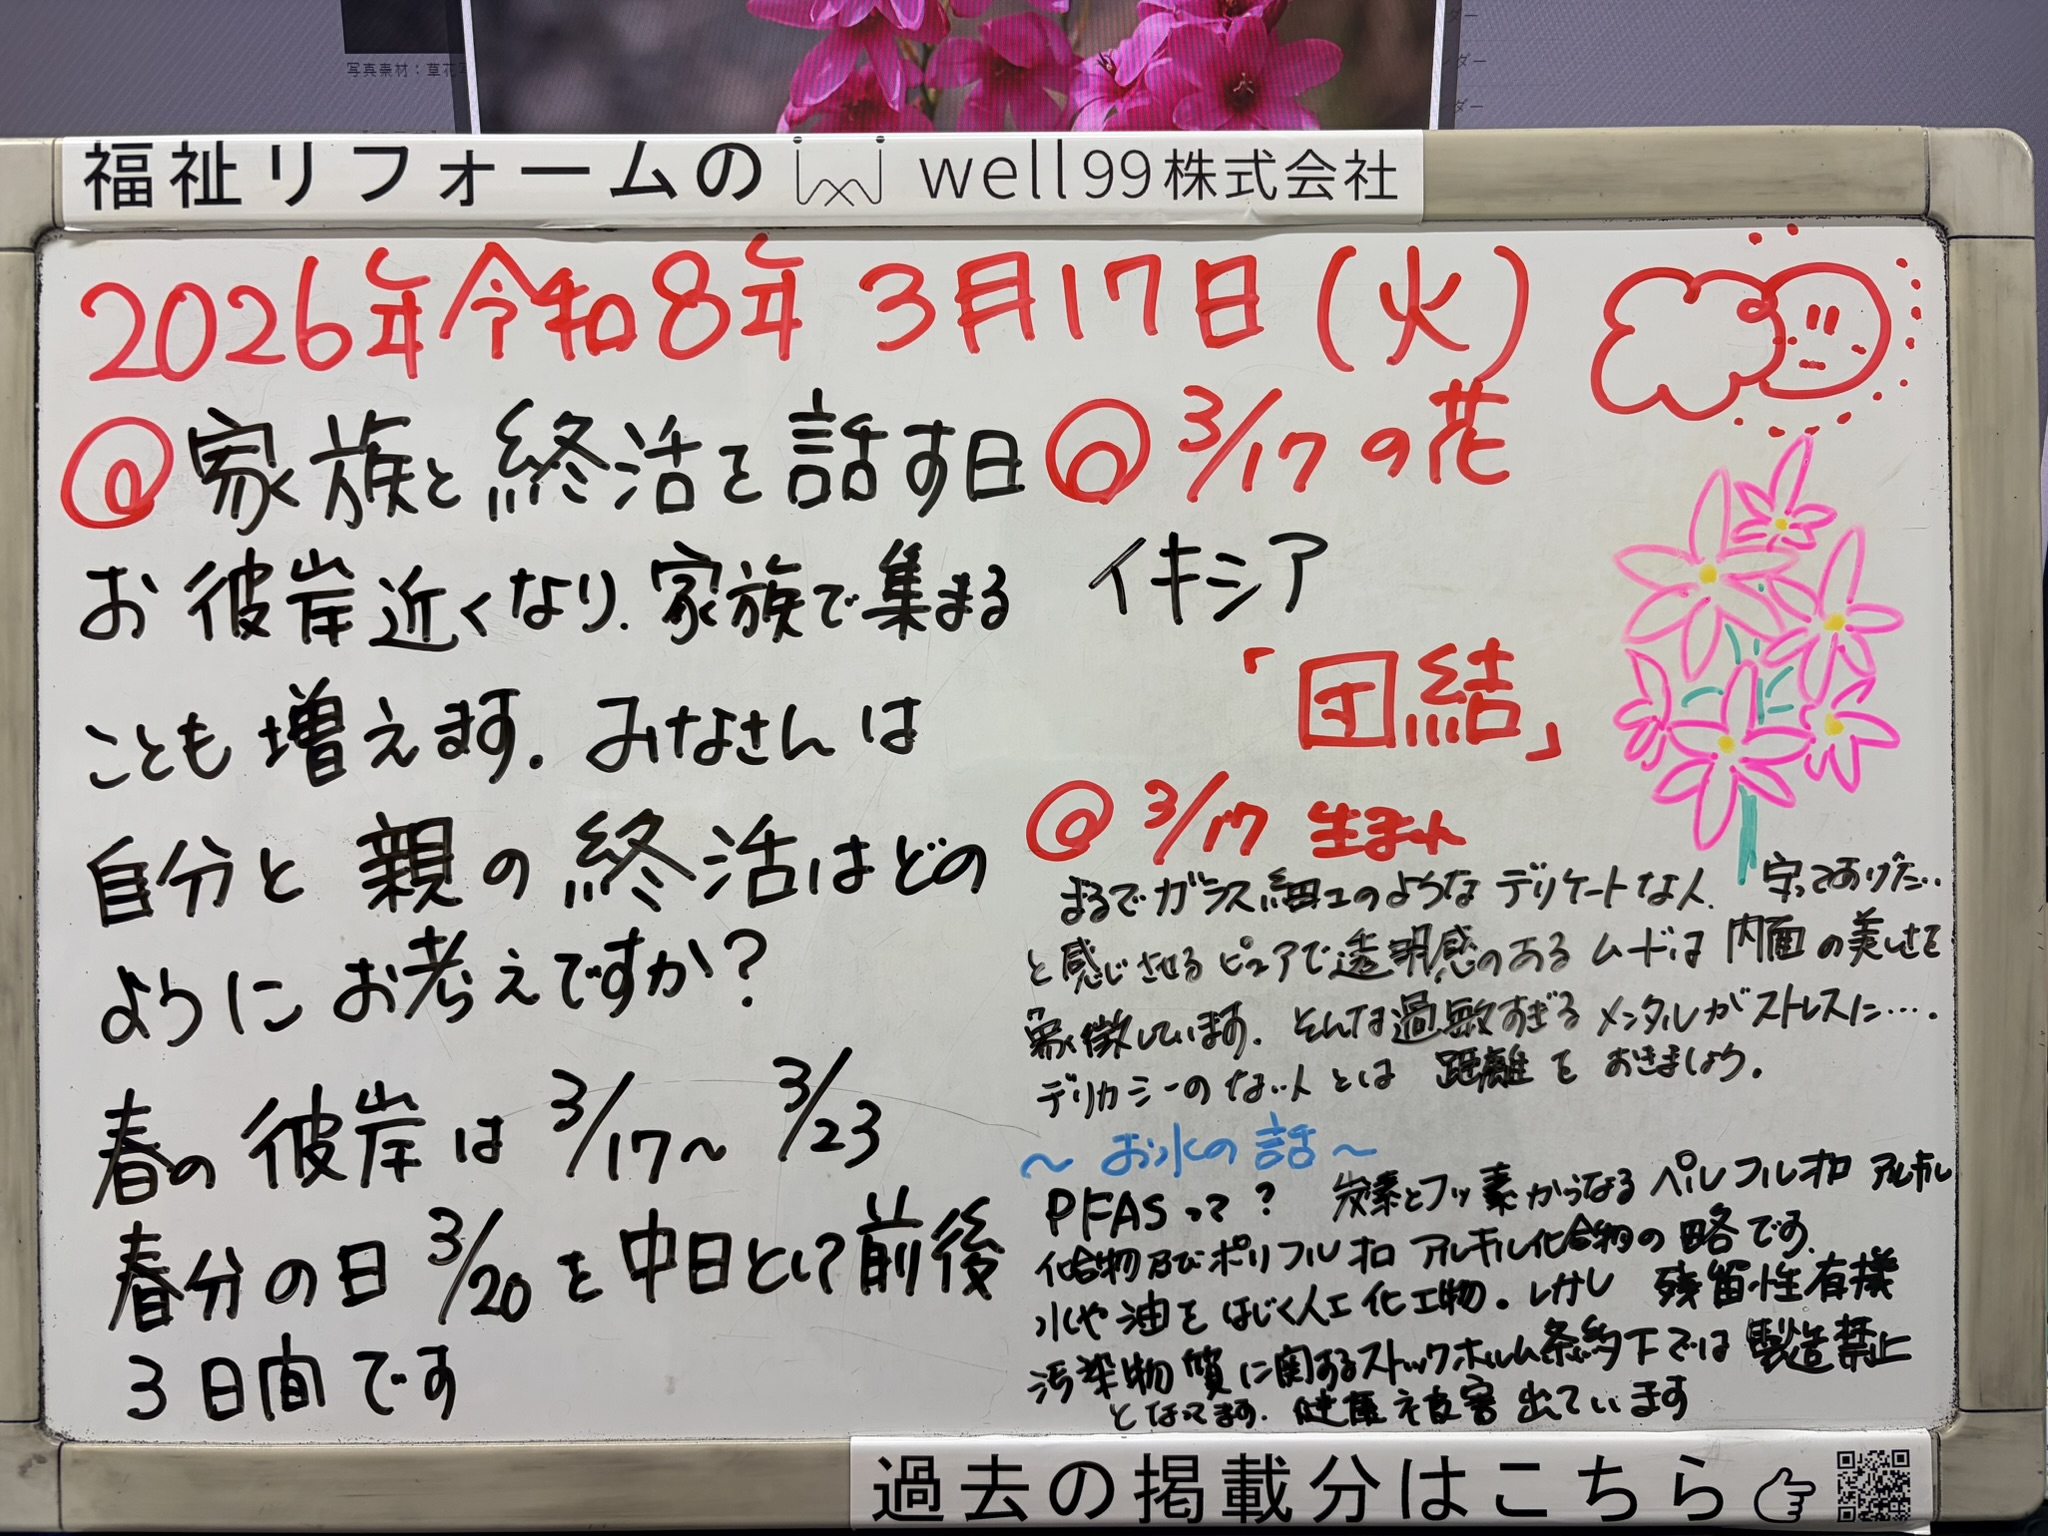 写真素材：草花
ダー
ダー
福祉リフォームの well99株式会社
2026年令和8年 3月17日(火)
家族と終活を話す日
お彼岸近くなり、家族で集まる
ことも増えます。みなさんは
自分と親の終活はどの
ようにお考えですか?
春の彼岸は3/17〜3/23
春分の日3/20を中日として前後
3日間です
3/17の花
イキシア
「団結」
3/17 生まれ
まるでガラス細工のようなデリケートな人。守ってあげた‥
と感じさせるピュアで透明感のあるムードは内面の美しさを
象徴しています。そんな過敏すぎるメンタルがストレスに‥‥。
デリカシーのない人とは距離をおきましょう。
〜お水の話〜
PFASって? 炭素とフッ素からなるペルフルオロアルキル
化合物及びポリフルオロアルキル化合物の略です。
水や油をはじく人工化工物。しかし残留性有機
汚染物質に関するストックホルム条約下では製造禁止
となってます。健康被害出ています
過去の掲載分はこちら